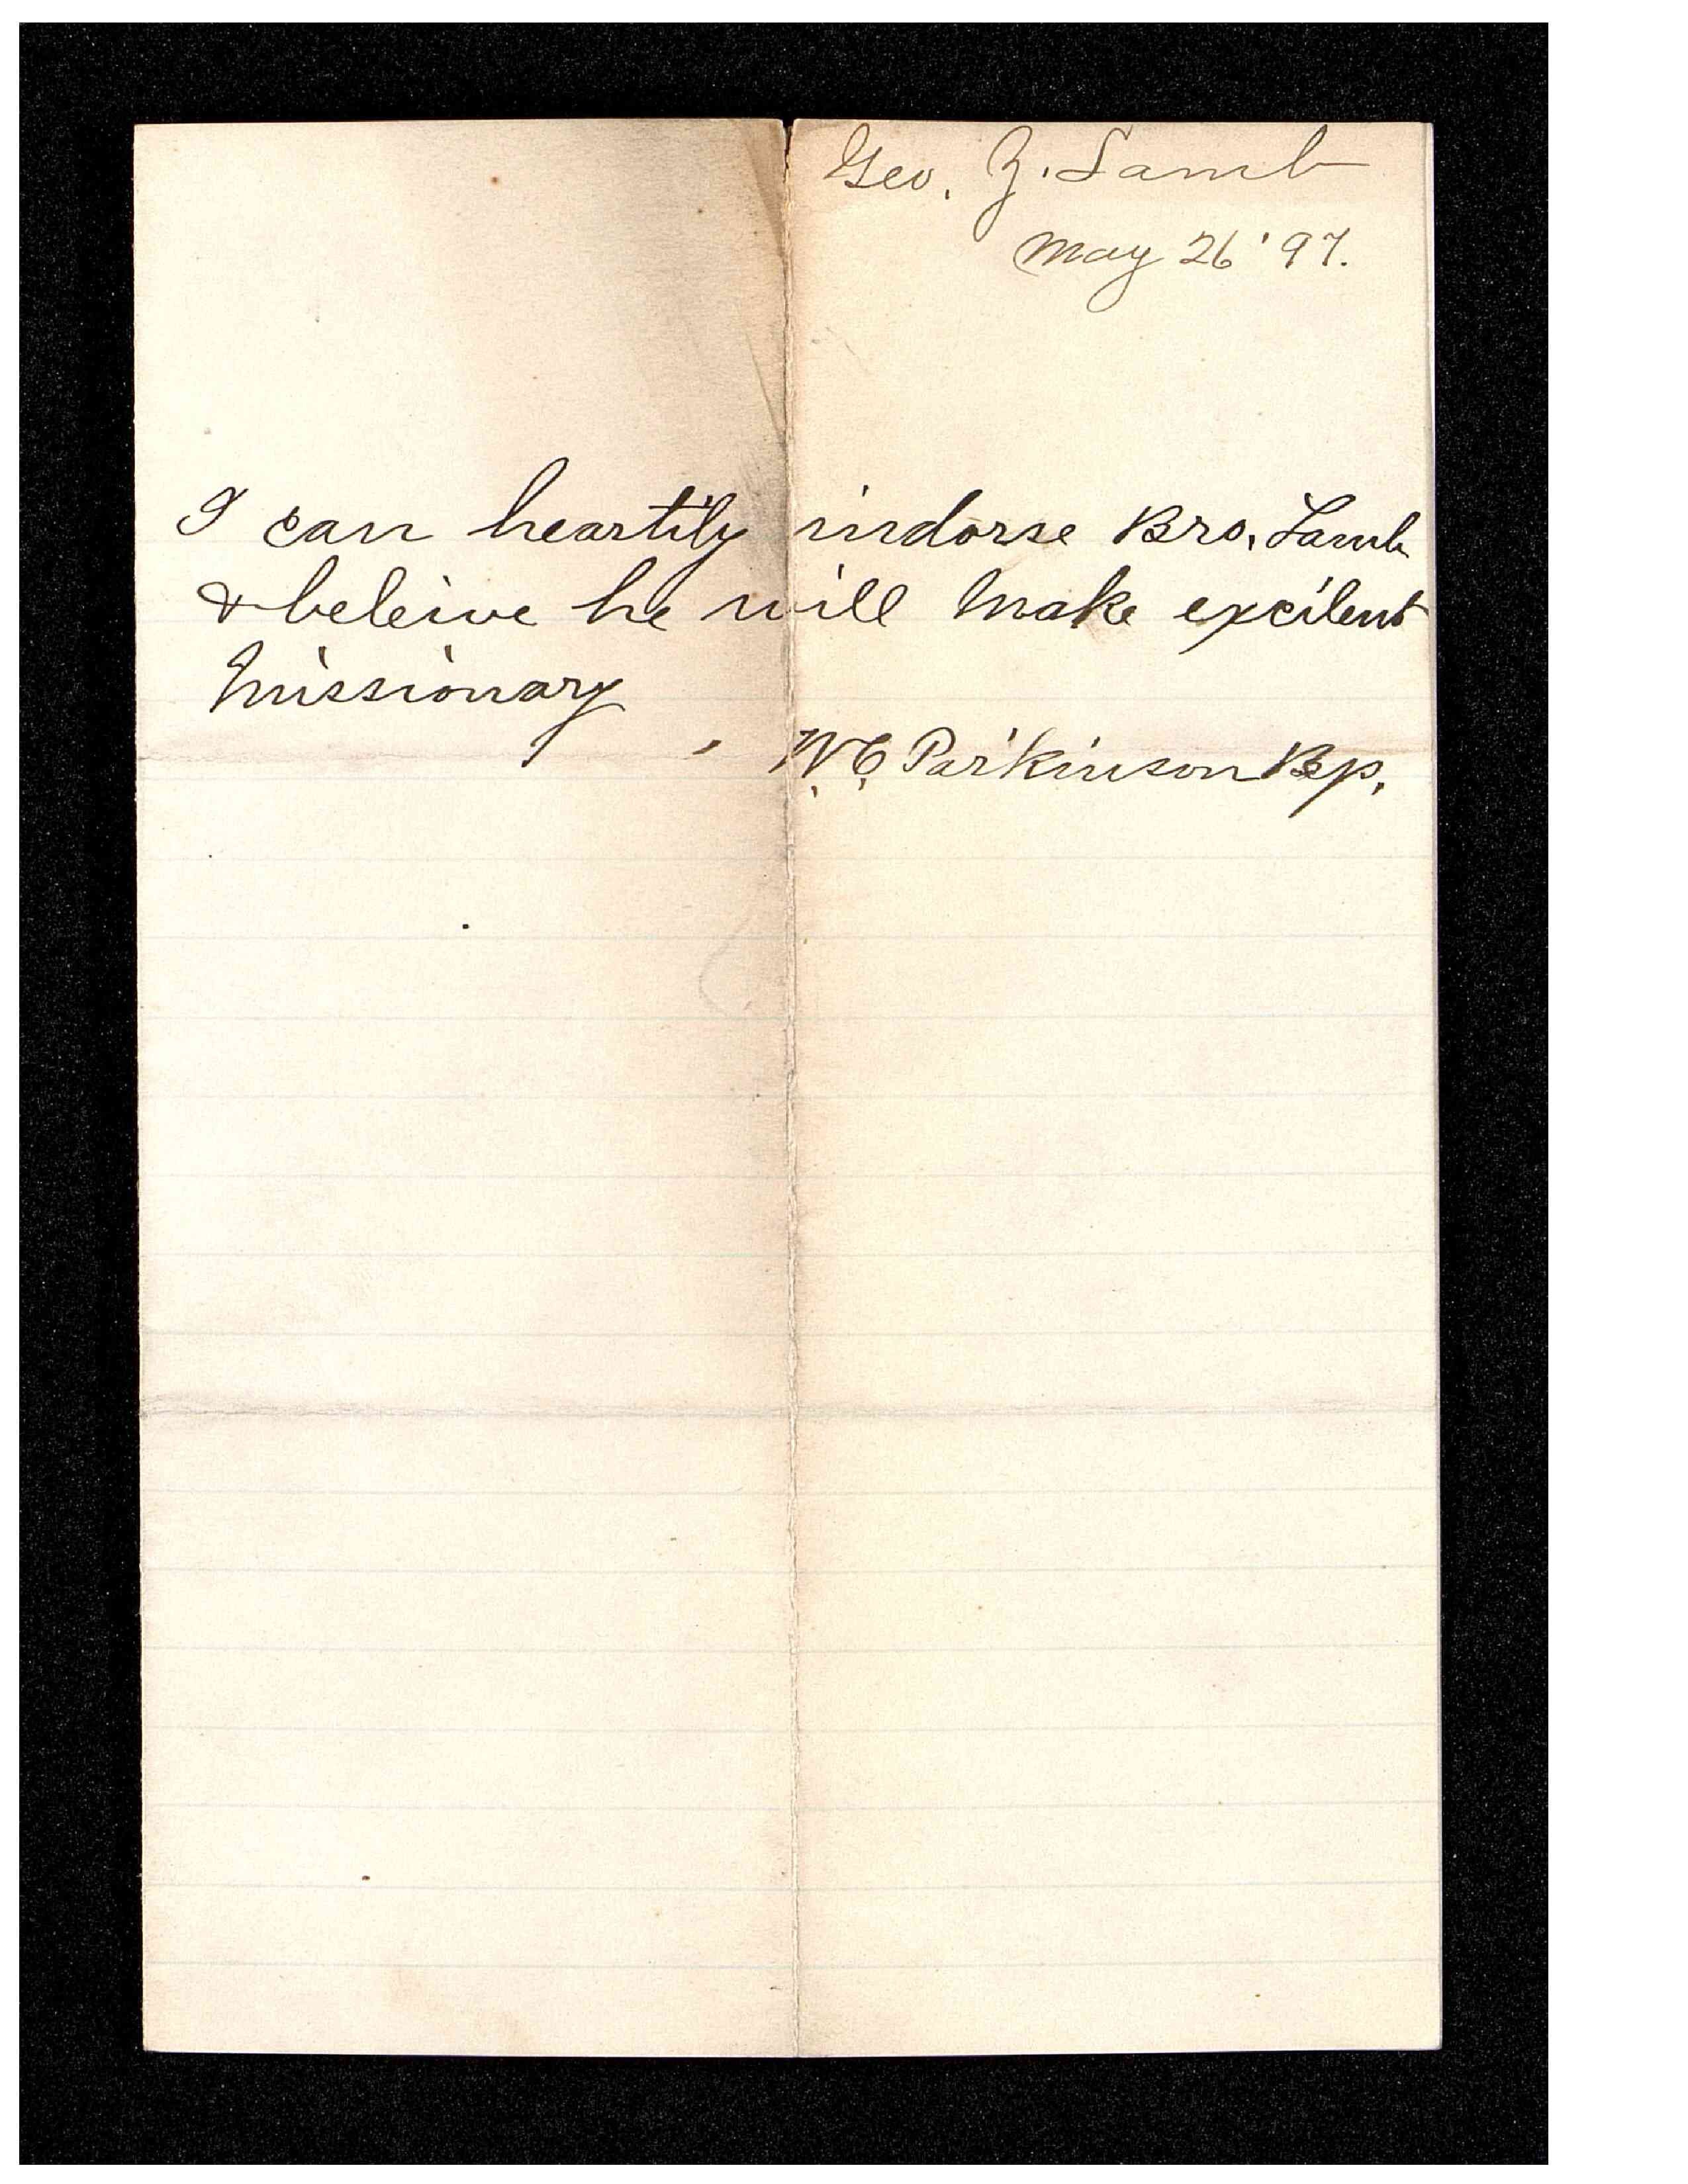 Geo. Z. Lamb
May 26 '97.
I can heartily indorse Bro. Lamb
& beleive he will make excilent
Missionary
W. C. Parkinson Bp.